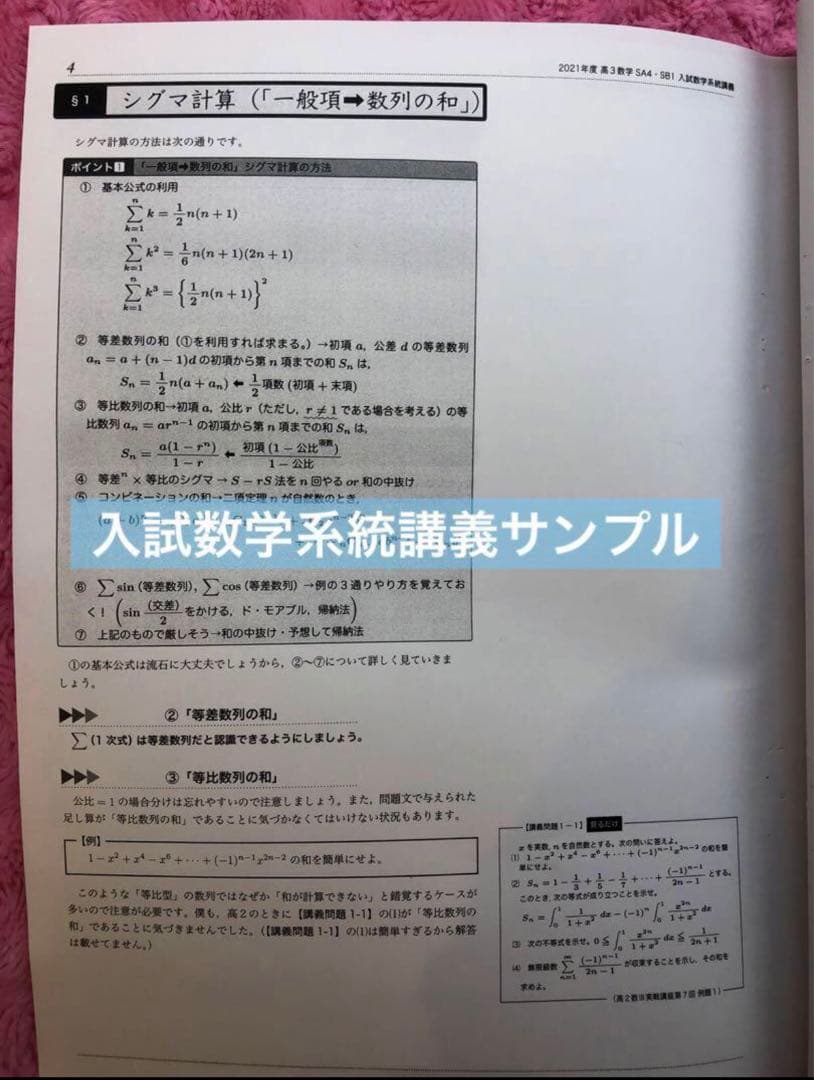 4
2021年度 高3数学 SA4・SB1 入試数学系統講義
§1 シグマ計算(「一般項➡数列の和」)
シグマ計算の方法は次の通りです。
ポイント1 「一般項➡数列の和」シグマ計算の方法
① 基本公式の利用
\sum_{k=1}^{n} k = \frac{1}{2}n(n+1)
\sum_{k=1}^{n} k^2 = \frac{1}{6}n(n+1)(2n+1)
\sum_{k=1}^{n} k^3 = \left\{\frac{1}{2}n(n+1)\right\}^2
② 等差数列の和(①を利用すれば求まる。)→初項 a, 公差 d の等差数列
a_n = a + (n-1)d の初項から第 n 項までの和 S_n は,
S_n = \frac{1}{2}n(a + a_n) ⬅ \frac{1}{2}項数 (初項 + 末項)
③ 等比数列の和→初項 a, 公比 r (ただし, r ≠ 1 である場合を考える) の等
比数列 a_n = ar^{n-1} の初項から第 n 項までの和 S_n は,
S_n = \frac{a(1-r^n)}{1-r} ⬅ \frac{初項 (1-公比^{項数})}{1-公比}
④ 等差^n × 等比のシグマ → S - rS 法を n 回やる or 和の中抜け
⑤ コンビネーションの和→二項定理 n が自然数のとき,
入試数学系統講義サンプル
⑥ \sum sin (等差数列), \sum cos (等差数列) →例の3通りやり方を覚えてお
く! \left(sin\frac{(交差)}{2}をかける, ド・モアブル, 帰納法\right)
⑦ 上記のもので厳しそう→和の中抜け・予想して帰納法
①の基本公式は流石に大丈夫でしょうから, ②〜⑦について詳しく見ていきま
しょう。
▶▶▶ ②「等差数列の和」
\sum (1次式) は等差数列だと認識できるようにしましょう。
▶▶▶ ③「等比数列の和」
公比 = 1 の場合分けは忘れやすいので注意しましょう。また, 問題文で与えられた
足し算が「等比数列の和」であることに気づかなくてはいけない状況もあります。
【例】
1 - x^2 + x^4 - x^6 + ・・・ + (-1)^{n-1}x^{2n-2} の和を簡単にせよ。
このような「等比型」の数列ではなぜか「和が計算できない」と錯覚するケースが
多いので注意が必要です。僕も, 高2のときに【講義問題1-1】の(1)が「等比数列の
和」であることに気づきませんでした。(【講義問題1-1】の(1)は簡単すぎるから解答
は載せてません。)
【講義問題1-1】
x を実数, n を自然数とする。次の問いに答えよ。
(1) 1 - x^2 + x^4 - x^6 + ・・・ + (-1)^{n-1}x^{2n-2} の和を簡
単にせよ。
(2) S_n = 1 - \frac{1}{3} + \frac{1}{5} - \frac{1}{7} + ・・・ + \frac{(-1)^{n-1}}{2n-1} とする。
このとき, 次の等式が成り立つことを示せ。
S_n = \int_0^1 \frac{1}{1+x^2} dx - (-1)^n \int_0^1 \frac{x^{2n}}{1+x^2} dx
(3) 次の不等式を示せ。0 ≦ \int_0^1 \frac{x^{2n}}{1+x^2} dx ≦ \frac{1}{2n+1}
(4) 無限級数 \sum_{n=1}^{∞} \frac{(-1)^{n-1}}{2n-1} が収束することを示し, その和を
求めよ。
(高2数㊢実戦講座第7回 例題1)